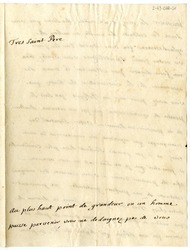 Tres Saint Père
au plus haut point de grandeur ou un homme
puisse parvenir vous ne dedaignez pas de vous